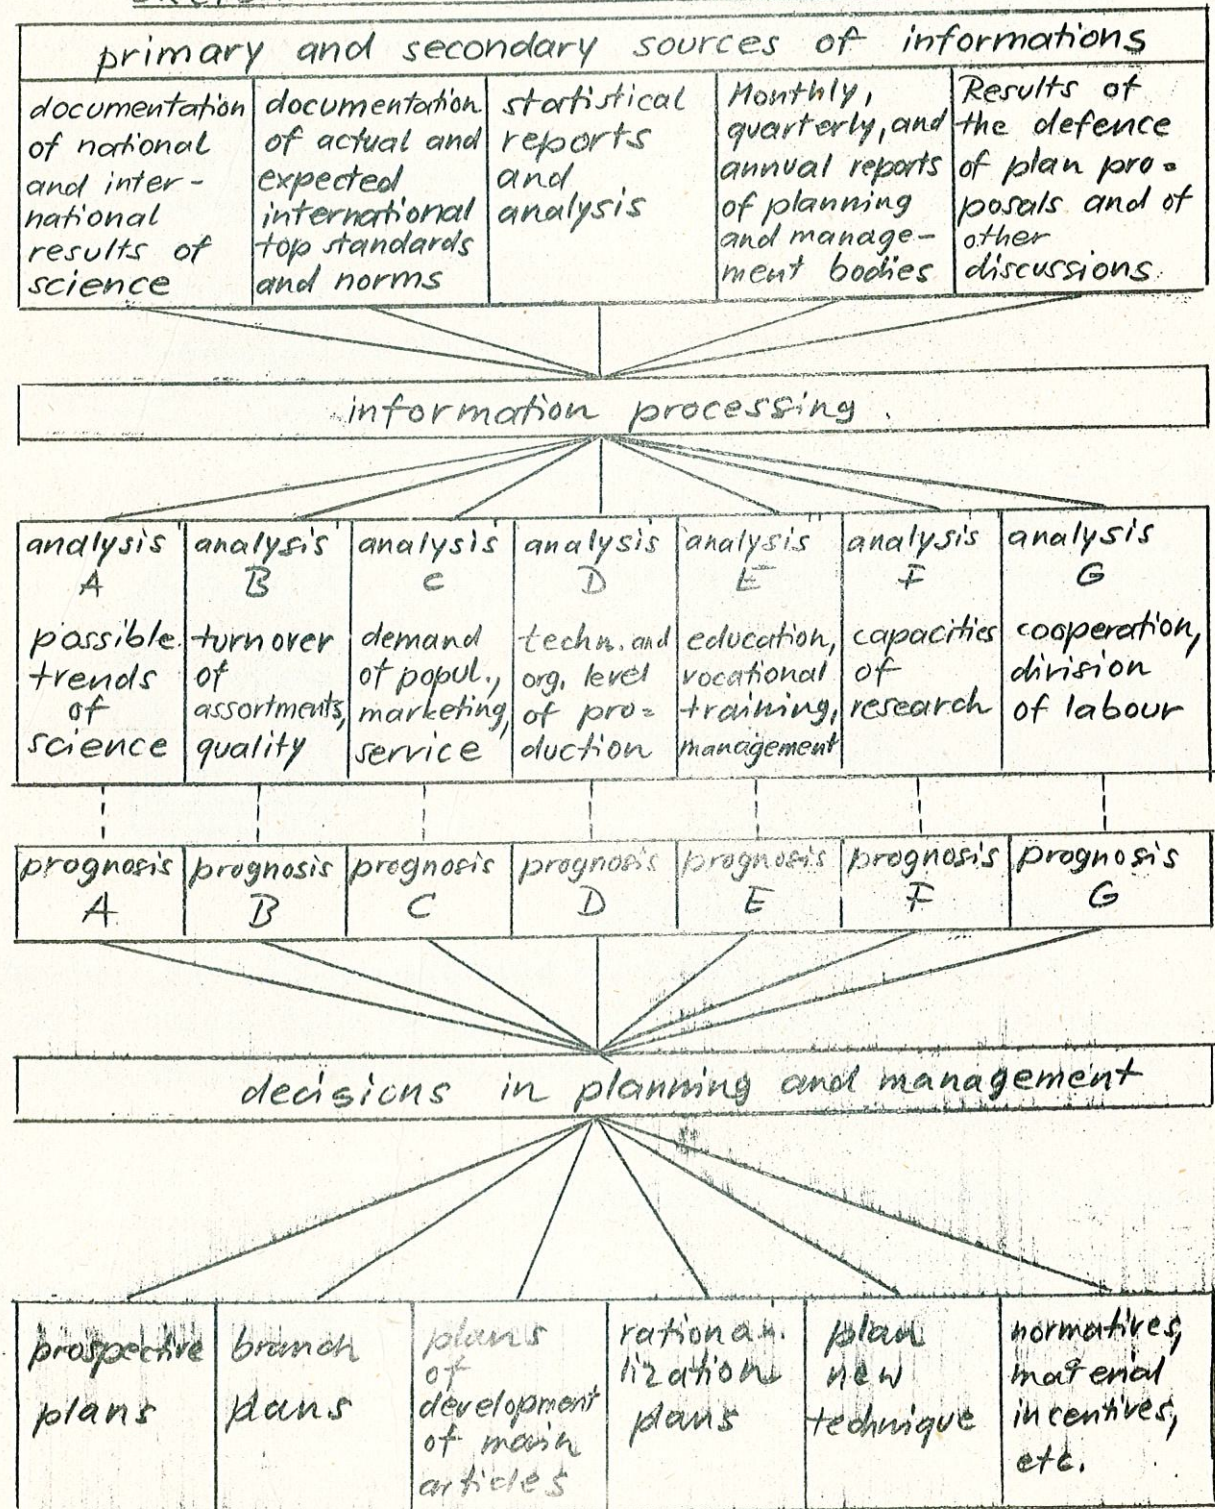 primary and secondary sources of informations
documentation
of national
and inter-
national
results of
science
documentation
of actual and
expected
international
top standards
and norms
statistical
reports
and
analysis
Monthly,
quarterly, and
annual reports
of planning
and manage-
ment bodies
Results of
the defence
of plan pro=
posals and of
other
discussions.
information processing.
analysis
A
possible
trends
of
science
analysis
B
turnover
of
assortments,
quality
analysis
C
demand
of popul.,
marketing,
service
analysis
D
techn. and
org. level
of pro=
duction
analysis
E
education,
vocational
training,
management
analysis
F
capacities
of
research
analysis
G
cooperation,
division
of labour
prognosis
A
prognosis
B
prognosis
C
prognosis
D
prognosis
E
prognosis
F
prognosis
G
decisions in planning and management
prospective
plans
branch
plans
plans
of
development
of main
articles
lization
plans
plan
new
technique
normatives,
material
incentives,
etc.